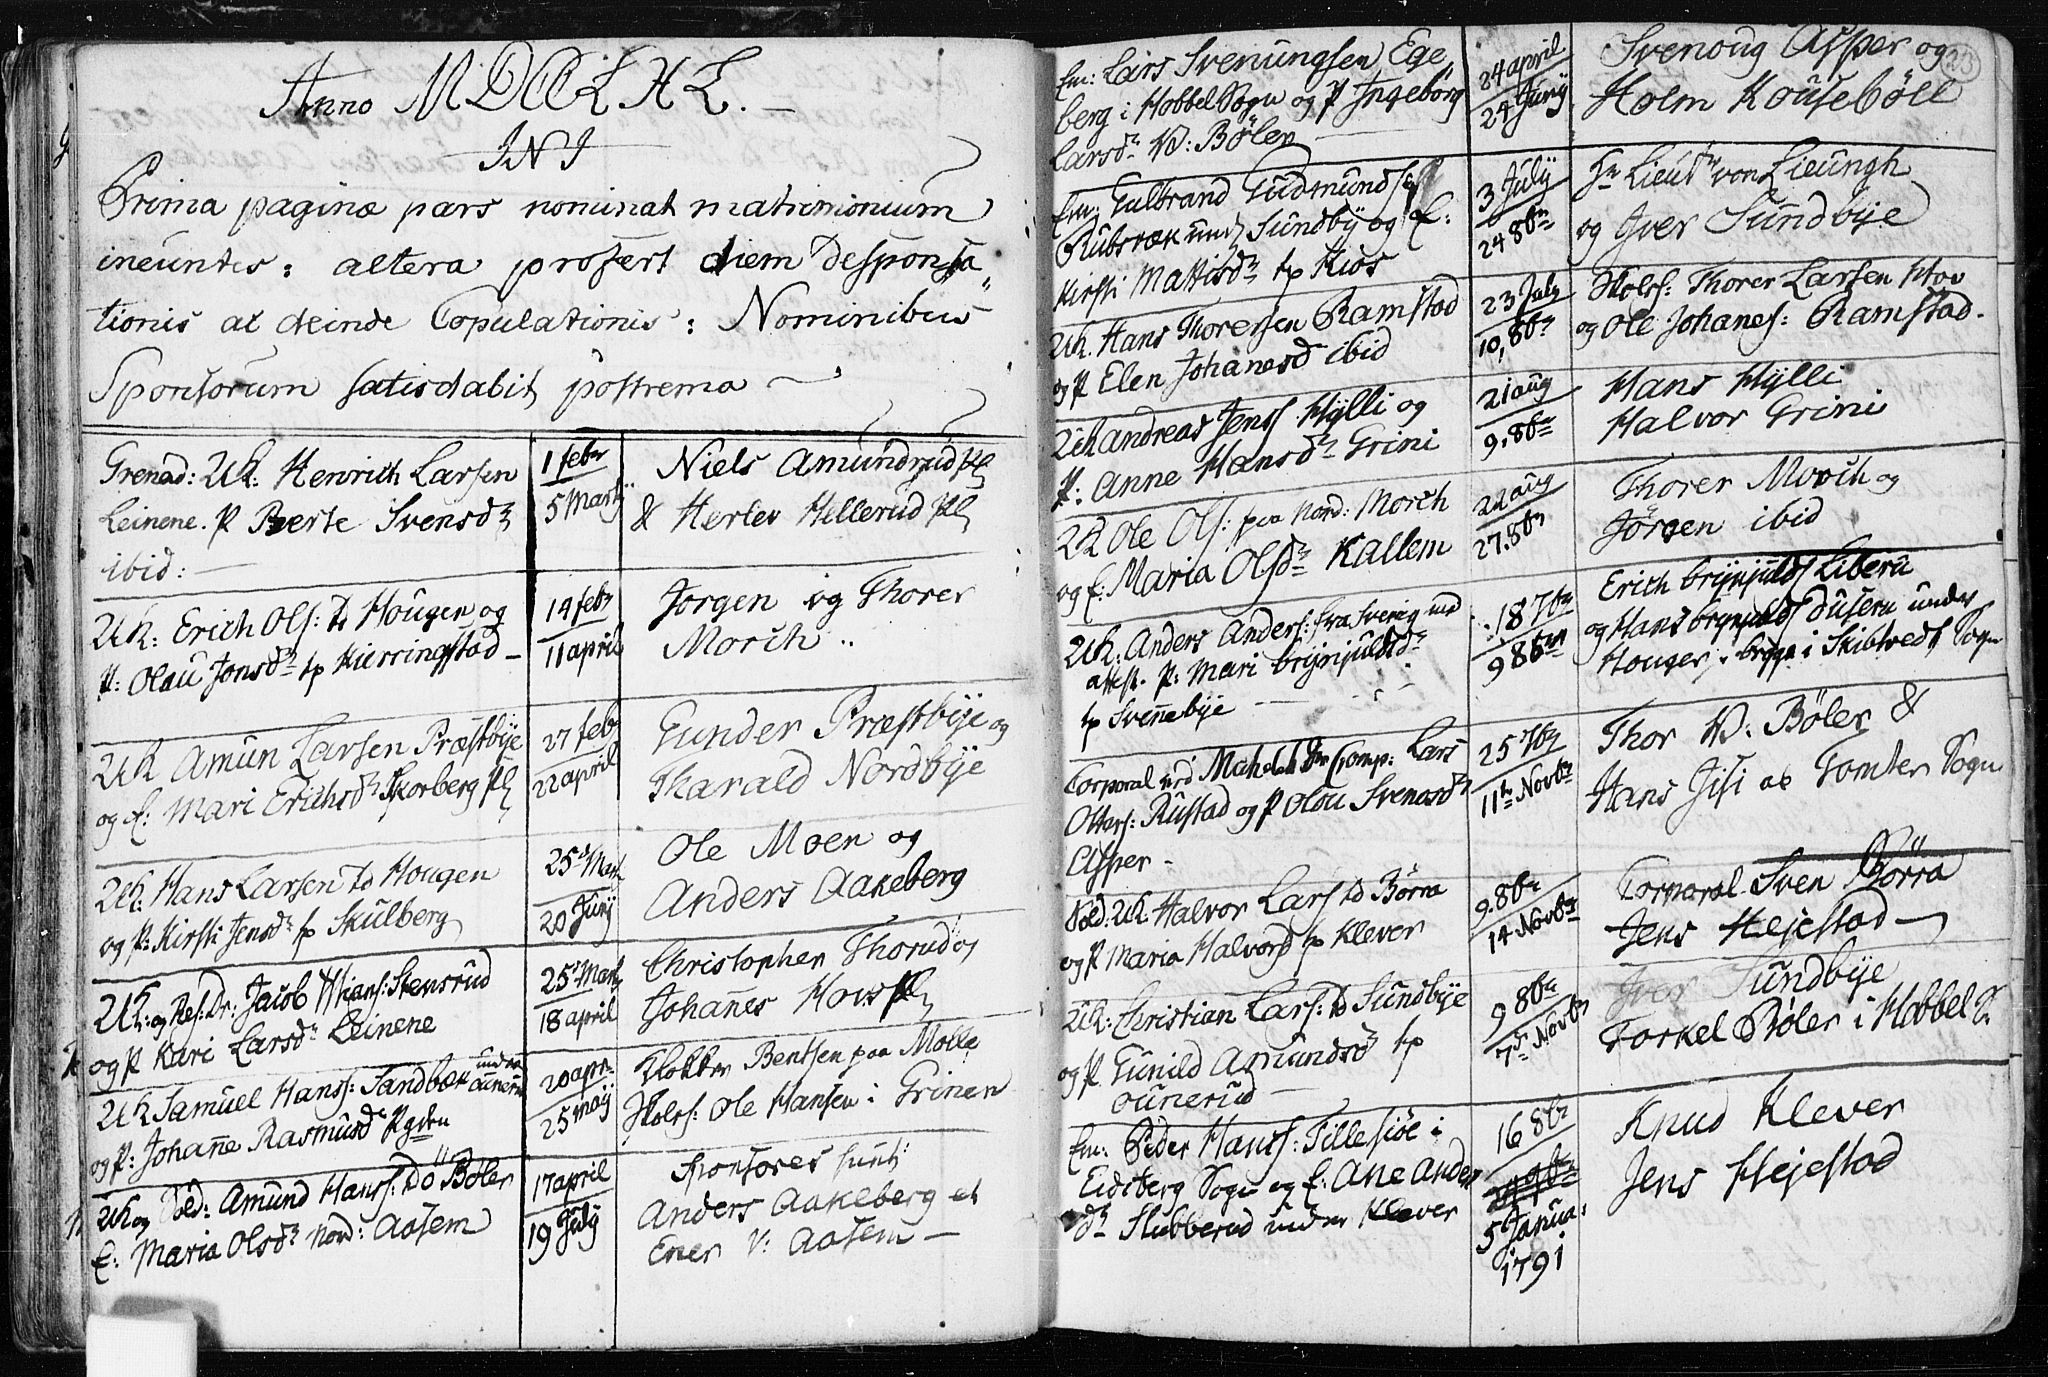 Anno MDCCLXXXX.
INI
Prima paginæ pars nominat matrimonium
ineuntes: altera profert diem Desponsa
tionis at deinde Copulationis: Nominibus
Sponsorum satisdabit postrema
Grenad: UK: Henrich Larsen
Leinene. P Berte Svensdr
ibid:
1 febr
5 Martij
Niels Amundrud Pl
& Herlev Hellerud Pl
UK: Erich Ols: to Hougen og
P: Olau Jonsdr tp Kierringstad
14 febr
11 april
Jorgen og Thorer
Morch
UK Amun Larsen Præstbÿe
og E: Mari Erichsdr Skorberg Pl
27 febr
22 april
Gunder Præstbÿe og
Tharald Nordbÿe
UK: Hans Larsen to Hougen
og P: Kirsti Jensdr tp Skulberg
25 Mart
20 Junÿ
Ole Moen og
Anders Aakeberg
UK: og Res: Dr: Jacob Hans: Stensrud
og P Kari Larsdr Leinene
25 Mart
18 april
Christopher Thorud og
Johannes Pl
UK Samuel Hanss: Sandbæk under
ounerud
og P: Johanne Rasmusd
20 apr
25 maÿ
Klokker Bentsen paa Molle
Skolrs: Ole Hansen i Grinen
UK og Sold: Amund Hanss: Bøler
E: Maria Olsdr Nord: Aasem
17 april
19 Julÿ
Sponsores sunt:
Anders Aakeberg et
Ener V: Aasem
23
Em: Lars Svenungsen Ege
berg i Hobbel Sogn og P Ingeborg
Larsdr V: Bøler
24 april
24 Junÿ
Svenoug Asper og
Holm Kousebøll
Em: Gulbrand Gudmunds
Rubsræk und Sundbÿ og E:
Kirsti Mattisdr tp Kios
3 Julÿ
24 8br
Hr Lieutn von Lieungh
og Iver Sundbÿe
UK. Hans Thoresen Ramstad
og P Elen Johanesd ibid
23 July
10, 8br
Skolrs: Thorer Larsen Hov
og Ole Johanes: Ramstad.
UK andreas Jenss Hÿlli og
P: Anne Hansdr Grini
21 aug
9. 8br
Hans Hÿlli
Halvor Grini
UK Ole Ols: paa Nord: Morch
og E: Maria Olsdr Kallem
22 aug
27. 8br
Thorer Morch og
Jørgen ibid
UK: Anders Anders: fra Sverig med
attest. P: Mari brÿnjulsdr
tp Svennebÿe
18 7br
9 8br
Erich brÿnjulds Liberu
og Hans brynjulds Duseru under
Houger i brÿge i Skibtvedt Sogn
Corporal ved Comp: Lars
Olters: Rustad og P Olou Svensdr
Asper
25 7br
11te Novbr
Thor V: Bøler &
Hans Jisi ae Tomter Sogn
Sold: UK Halvor Lars to Børra
og P Maria Halvord tp Klever
9. 8br
14 Novbr
Corporal Sven Børra
Jens Hejestad
UK: Christian Lars: to Sundbÿe
og P. Gunild Amundsdr tp
ounerud
9 8br
7de Novbr
Iver Sundbÿe
Torkel Bøler i Hobbel S.
Em: Peder Hanss: Tillesiøe i
Eidsberg Sogn og E: Ane Anders
dr Slubberud under Klever
16 8br
5 Janua:
1791
Knud Klever
Jens Hejestad